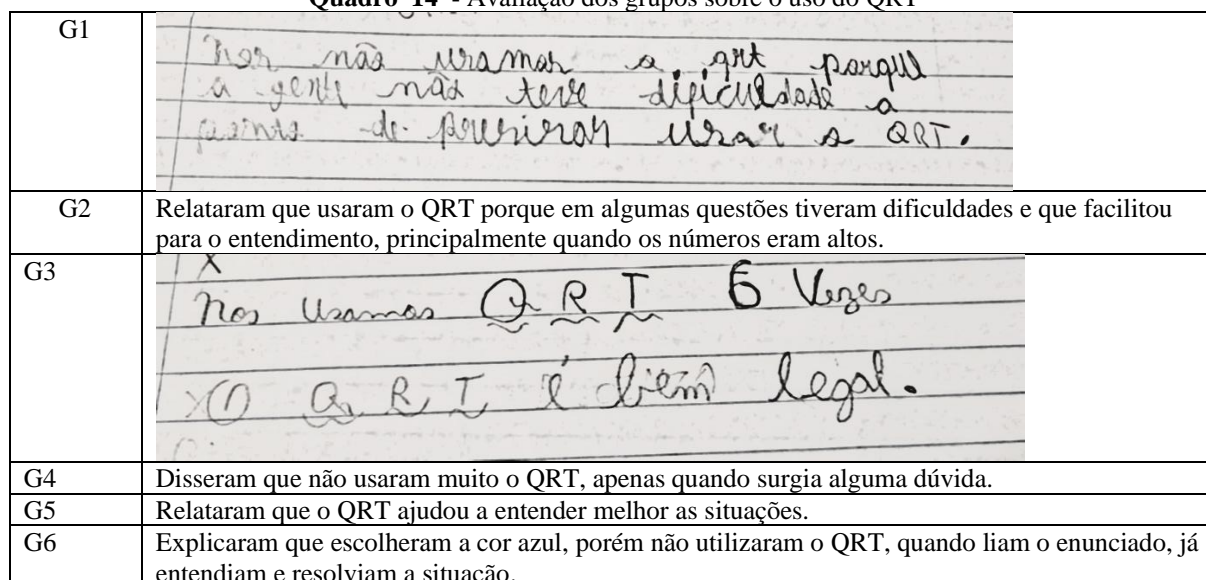 Quadro 14 - Avaliação dos grupos sobre o uso do QRT
G1
nos não usamos a qrt porque
a gente não teve dificuldade a
de precisar usar a QRT.
G2
Relataram que usaram o QRT porque em algumas questões tiveram dificuldades e que facilitou
para o entendimento, principalmente quando os números eram altos.
G3
X
nos Usamos Q R T 6 Vezes
XO Q R T é biem legal.
G4
Disseram que não usaram muito o QRT, apenas quando surgia alguma dúvida.
G5
Relataram que o QRT ajudou a entender melhor as situações.
G6
Explicaram que escolheram a cor azul, porém não utilizaram o QRT, quando liam o enunciado, já
entendiam e resolviam a situação.